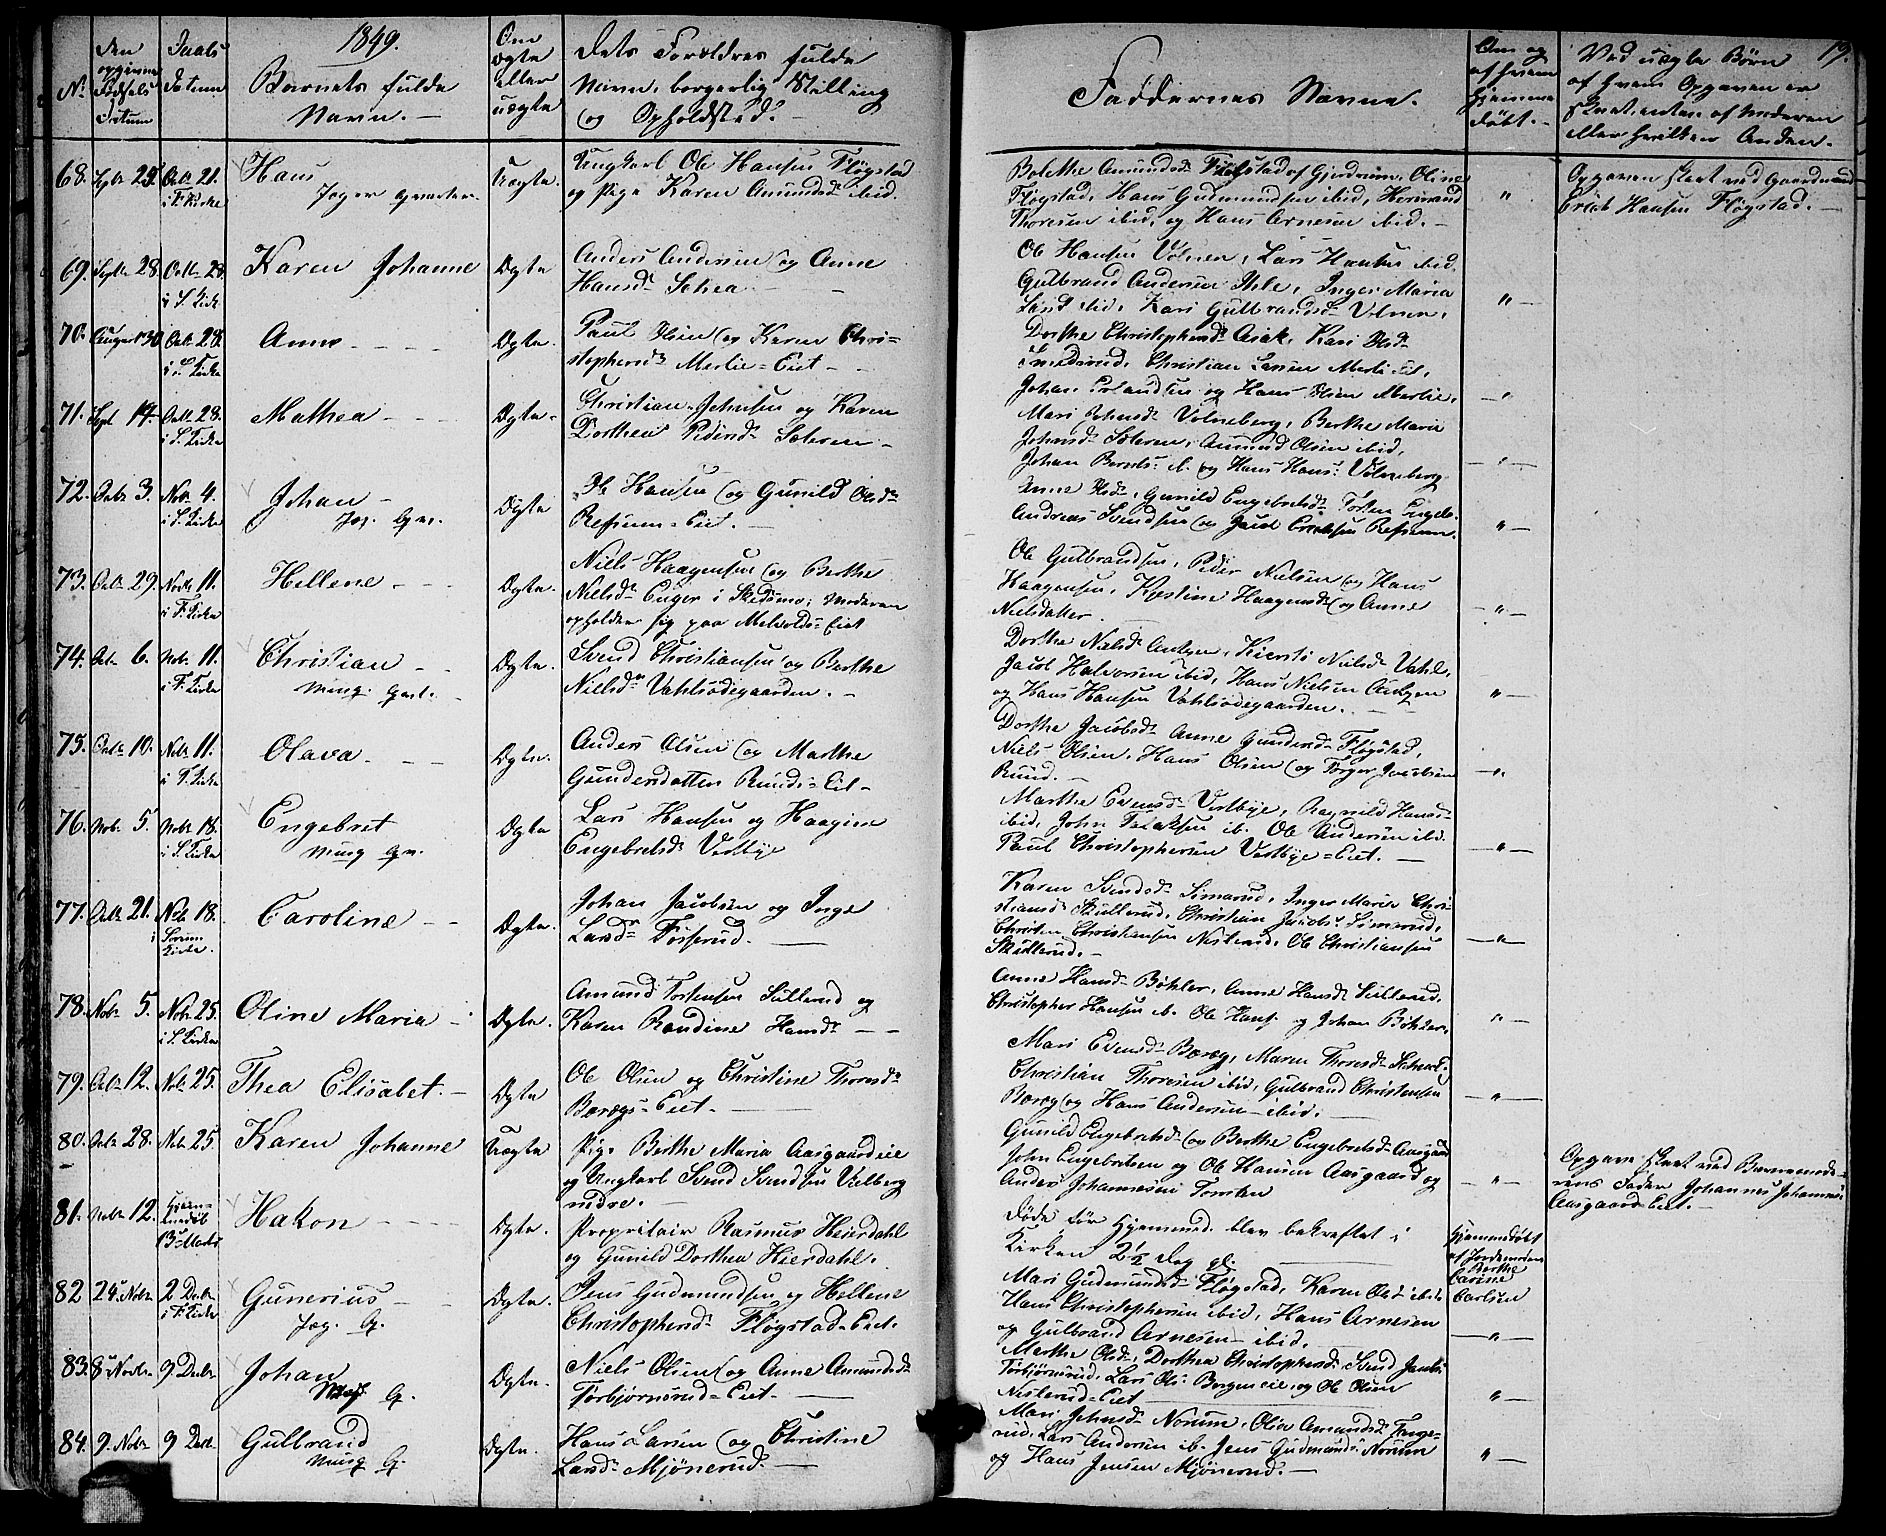 1849.
19.
No
den
opgivne
Fødsels
Datum
Daabs
Datum
Barnets fulde
Navn. —
Om
ægte
eller
uægte
Dets Forældres fulde
Navn, borgerlig Stilling
og Opholdsted. —
Faddernes Navne. —
Om og
af hvem
hjemme
døbt. —
Ved uægte Børn
af hvem Opgaven er
skeet, enten af Moderen
eller hvilken Anden. —
68. Septr 25. Octr 21.
i F. Kirke
Hans
Uægte.
Ungkarl Ole Hansen Fløgstad
og Pige Karen Amundsdr ibid.
Bolethe Amundsdr Fløgstad af Gjerdrum, Oline
Fløgstad, Hans Gudmundsen ibid,
Thoresen ibid, og Hans Arnesen ibid. —
"
Opgaven skeet ved Gaardmand
Erich Hansen Fløgstad. —
69. Septr 28. Octr 28
i S. Kirke
Karen Johanne
Ægte
Anders Andersen og Anne
Hansdr —
Ole Hansen Volmen, Lars Hansen ibid,
Gulbrand Andersen Inger Maria
ibid, Kari Gulbrandsdr Volmen,
" —
70. August 30 Octr 28.
i S. Kirke
Anne — — —
Ægte.
Paul Olsen og Karen Chri-
stophersdr Merlie-Eiet —
Dorthe Christophersdr Asak, Kari Olsdr
Christian Larsen Merli Eiet,
Johan Erlandsen og Hans Olsen Merlie.
— " —
71. Sept 14. Octr 28.
i S. Kirke
Mathea — —
Ægte —
Christian Johnsen og Karen
Dorthea Pedersdr Sæteren —
Mari Johnsdr Volneberg, Berthe Marie
Johnsdr Sæteren, Amund Olsen ibid,
Johan Berntsn ib. og Hans Hansn Volneberg
— " —
72. Octr 3. Novr 4.
i S. Kirke
Johan —
Ægte
Ole Hansen og Gunild Olsdr
Refsum-Eiet. —
Anne Olsdr, Gunild Engebretsdr
Andreas Svendsen og Erichsen Refsum.
" —
73. Octr 29. Novr 11.
i F. Kirke
Hellene —
Ægte.
Niels Haagensen og Berthe
Nielsdr Enger i Skedsmo; Moderen
opholder sig paa Melvolds-Eiet
Ole Gulbrandsen, Peder Nielsen og Hans
Haagensen, Kirstine Haagensdr og Anne
Nielsdatter
— " —
74. Octr 6. Novr 11.
i F. Kirke
Christian — —
Ægte.
Svend Christiansen og Berthe
Nielsdr Vahlsødegaarden. —
Dorthe Nielsdr Kiersti Nielsdr Vahl,
Jacob Halvorsen ibid, Hans Nielsen
og Hans Hansen Vahlsødegaarden. —
" —
75. Octr 10. Novr 11.
i F. Kirke
Olava — —
Ægte.
Anders Olsen og Marthe
Gundersdatter Ruuds-Eiet —
Dorthe Jacobsdr Anne Gundersdr Fløgstad,
Niels Olsen, Hans Olsen og Torger Jacobsen
Ruud. —
— " —
76. Novr 5. Novr 18.
i S. Kirke
Engebret
Ægte
Lars Hansen og Haagine
Engebretsdr Vestbye
Marthe Evensdr Vestbye, Ragnild Hansdr
ibid, John ib. Ole Andersen ibid
Paul Christophersen Vestbye-Eiet. —
— " —
77. Octr 21. Novr 18.
i Sørum
Kirke.
Caroline — —
Ægte.
Johan Jacobsen og Inge
Larsdr Fosserud. —
Karen Svendsdr Simarud, Inger Marie Chri-
stiansdr Skullerud, Christian Jacobsn Simarud,
Christen Christiansen Nisterud, Ole Christiansen
Skullerud. —
— " —
78. Novr 5. Novr 25.
i S. Kirke
Oline Maria —
Ægte.
Amund Torstensen Sullerud og
Karen Randine Hansdr — —
Anne Hansdr Böhler, Anne Hansdr Sullerud,
Christopher Hansen ib. Ole Hansn og Johan Böhler,
" —
79. Octr 12. Novr 25.
Thea Elisabet. —
Ægte
Ole Olsen og Christine Thoresdr
Borægs-Eiet. —
Mari Evensdr Boræg, Maren Thoresdr
Christian Thoresen ibid, Gulbrand Christensen
Boræg og Hans Andersen ibid. —
— " —
80. Octr 28. Novr 25.
Karen Johanne
Uægte
Pige Berthe Maria Aasgaardeie
og Ungkarl Svend Svendsen Vilberg
nedre. —
Gunild Engebretsdr og Berthe Engebretsdr Aasgaard
John Engebretsen og Ole Hansen Aasgaard og
Anders Johannesen Torsten
— " —
Opgaven skeet ved Barnemode-
rens Fader Johannes Johannesn
Aasgaard-Eiet. —
81. Novr 12. Hjem-
medøbt
Hakon — — —
Ægte.
Proprietair Rasmus Heierdahl
og Gunild Dorthea Heierdahl.
Døde før Hjemmed. blev bekræftet i
Kirken 2½ Dag gl.
Hjemmedøbt
af Jordemoder
Berthe
Carine
Carlsen
82 24. Novr 2 Decbr
i F. Kirke
Gunerius — —
Ægte.
Jens Gudmundsen og Hellene
Christophersdr Fløgstad-Eiet.
Mari Gudmundsdr Fløgstad, Karen Olsdr ibid
Hans Christophersen ibid, Hans Arnesen
og Gulbrand Arnesen ibid.
— " —
83. 8de Novbr 9 Decbr
Johan
Ægte.
Niels Olsen og Anne Amundsdr
Torbjørnsrud-Eiet. —
Marthe Olsdr, Dorthea Christophersdr Svend Jacobs.
Torbjørnsrud, Lars Ols. Borgeneie, og Ole Olsen
Nisterud-Eiet
" —
84. 9. Novbr 9 Decbr
Gulbrand
Ægte.
Hans Larsen og Christine
Larsdr Mjønerud. —
Mari Johnsdr Norum, Olia Amundsdr Tange-
rud, Lars Andersen ib. Jens Gudmunds. Norum
og Hans Jensen Mjønerud. —
" —